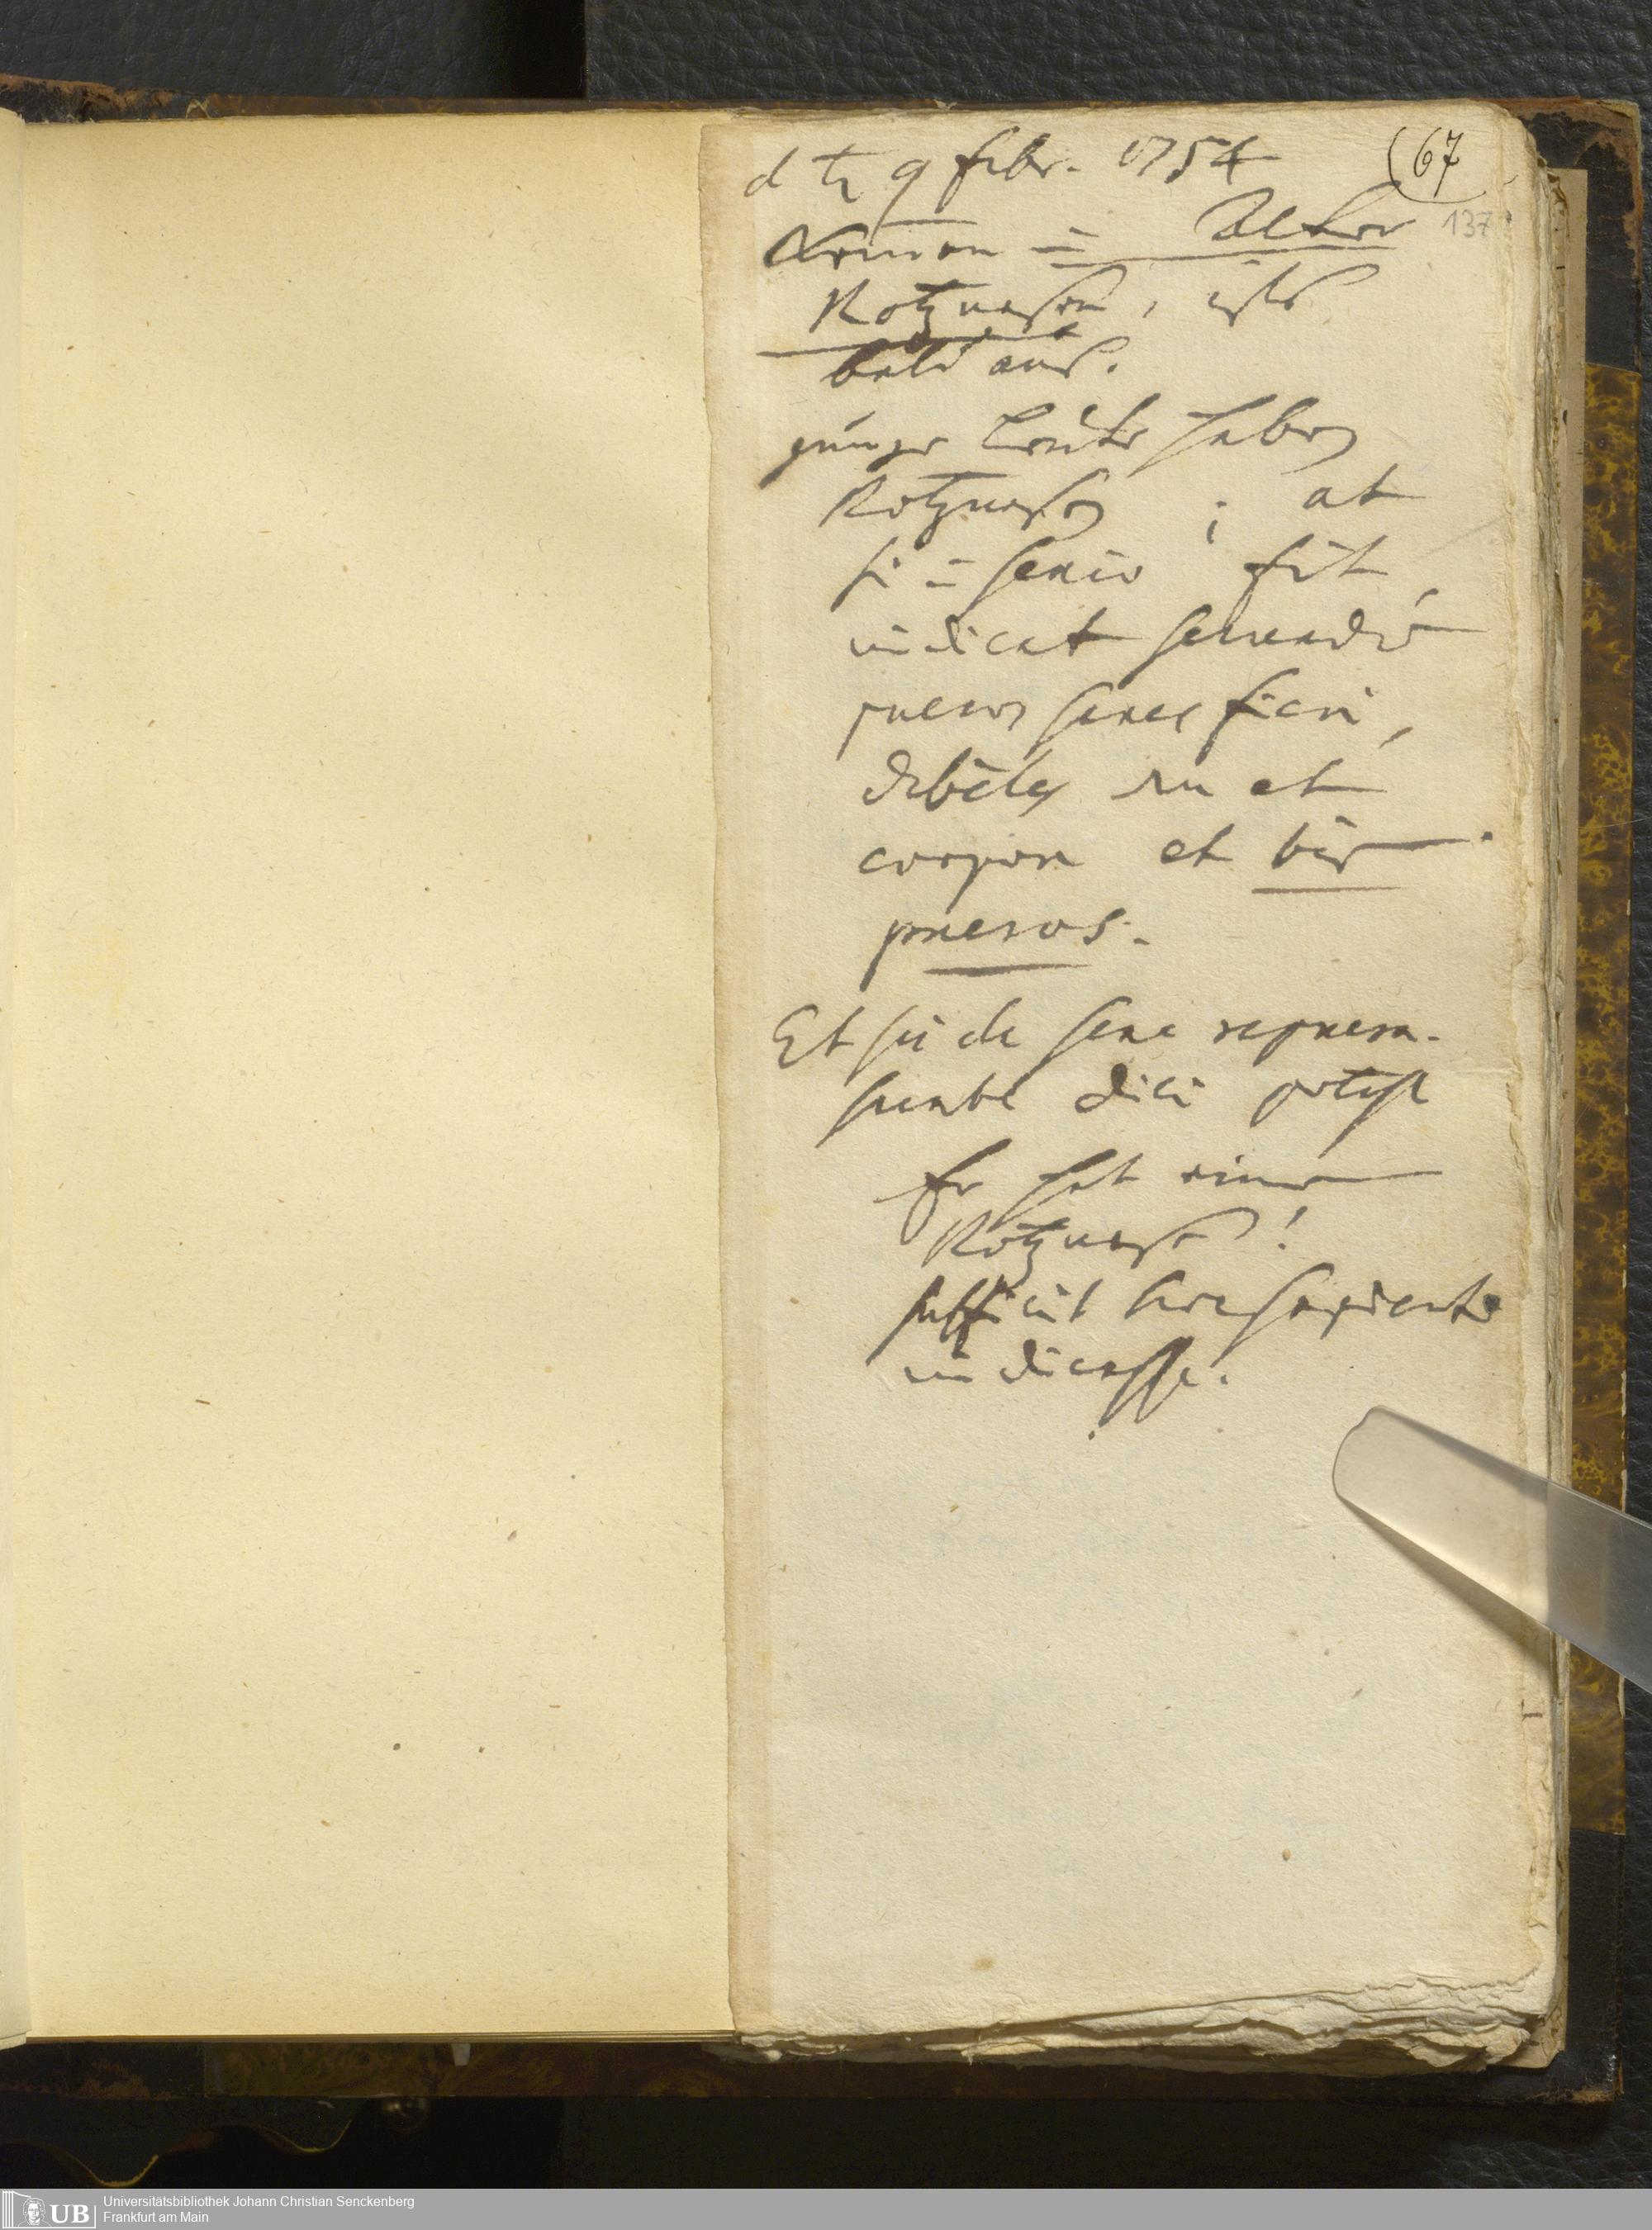 d ♄ 9 febr. 1754
(67
137
= Alter
Rotznasen, ists
bald aus.
junge Leute haben
Rotznasen; at
si = senio fit,
indicat
pueros senes fieri,
debiles et
corpore et bis
pueros.
Et sic de sene repuera-
scente dici potest
Er hat eine
Rotznase!
sufficit hoc sapienti
indicasse.
UB Universitätsbibliothek Johann Christian Senckenberg
Frankfurt am Main